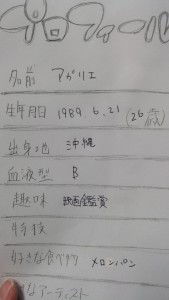 プロフィール
名前 アガリエ
生年月日 1989.6.21 (26歳)
出身地 沖縄
血液型 B
趣味 映画鑑賞
特技
好きな食べ物 メロンパン
なアーティスト